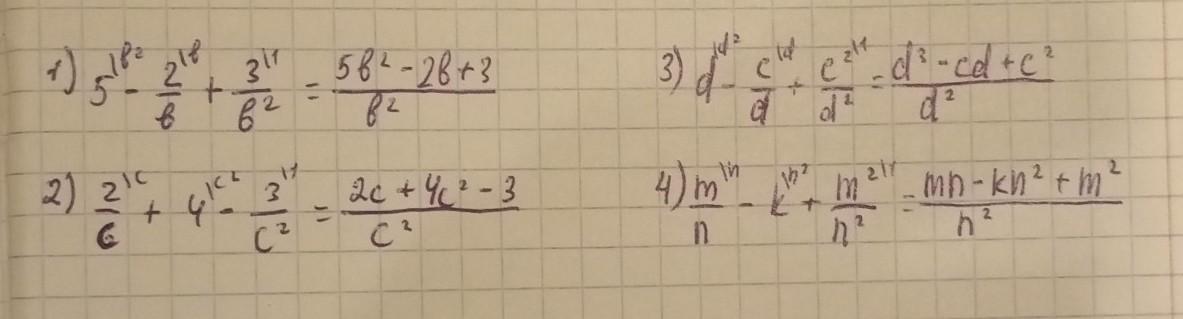 1) 5^{\b²} - 2^{\b}/b + 3^{\1}/b² = (5b² - 2b + 3)/b²
2) 2^{\c}/c + 4^{\c²} - 3^{\1}/c² = (2c + 4c² - 3)/c²
3) d^{\d²} - c^{\d}/d + c²^{\1}/d² = (d³ - cd + c²)/d²
4) m^{\n}/n - k^{\n²} + m²^{\1}/n² = (mn - kn² + m²)/n²